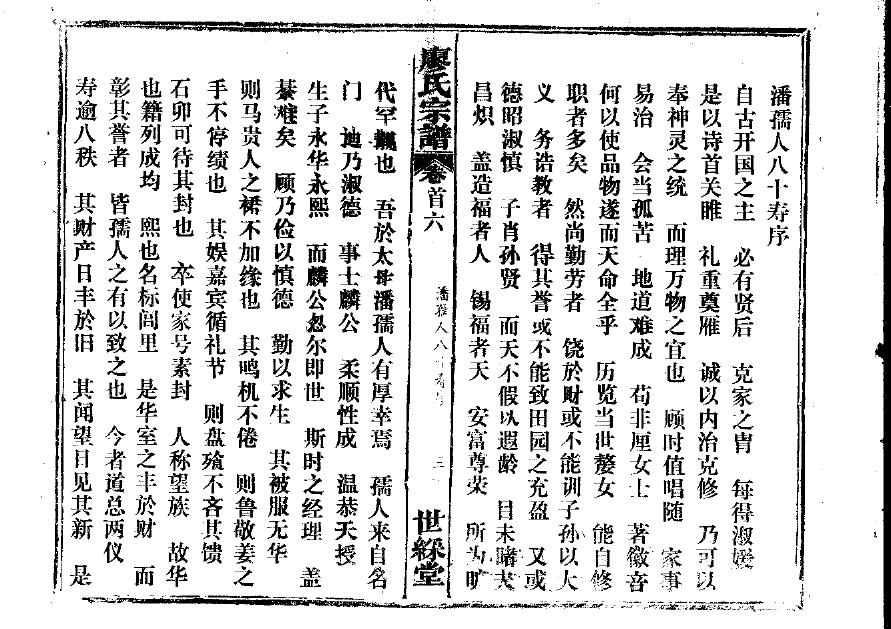 潘孺人八十寿序
自古开国之主 必有贤后 克家之胄 每得淑媛
是以诗首关雎 礼重奠雁 诚以内治克修 乃可以
奉神灵之统 而理万物之宜也 顾时值唱随 家事
易治 会当孤苦 地道难成 苟非厘女士 著徽音
何以使品物遂而天命全乎 历览当世嫠女 能自修
职者多矣 然尚勤劳者 饶於财或不能训子孙以大
义 务诰教者 得其誉或不能致田园之充盈 又或
德昭淑慎 子肖孙贤 而天不假以遐龄 目未睹夫
昌炽 盖造福者人 锡福者天 安富尊荣 所为旷
廖氏宗譜 卷首六 潘孺人八十寿序 三 世綵堂
代罕觏也 吾於太母潘孺人有厚幸焉 孺人来自名
门 迪乃淑德 事士麟公 柔顺性成 温恭天授
生子永华永熙 而麟公忽尔即世 斯时之经理 盖
綦难矣 顾乃俭以慎德 勤以求生 其被服无华
则马贵人之裙不加缘也 其鸣机不倦 则鲁敬姜之
手不停绩也 其娱嘉宾循礼节 则盘飧不吝其馈
石卯可待其封也 卒使家号素封 人称望族 故华
也籍列成均 熙也名标闾里 是华室之丰於财 而
彰其誉者 皆孺人之有以致之也 今者道总两仪
寿逾八秩 其财产日丰於旧 其闻望日见其新 是